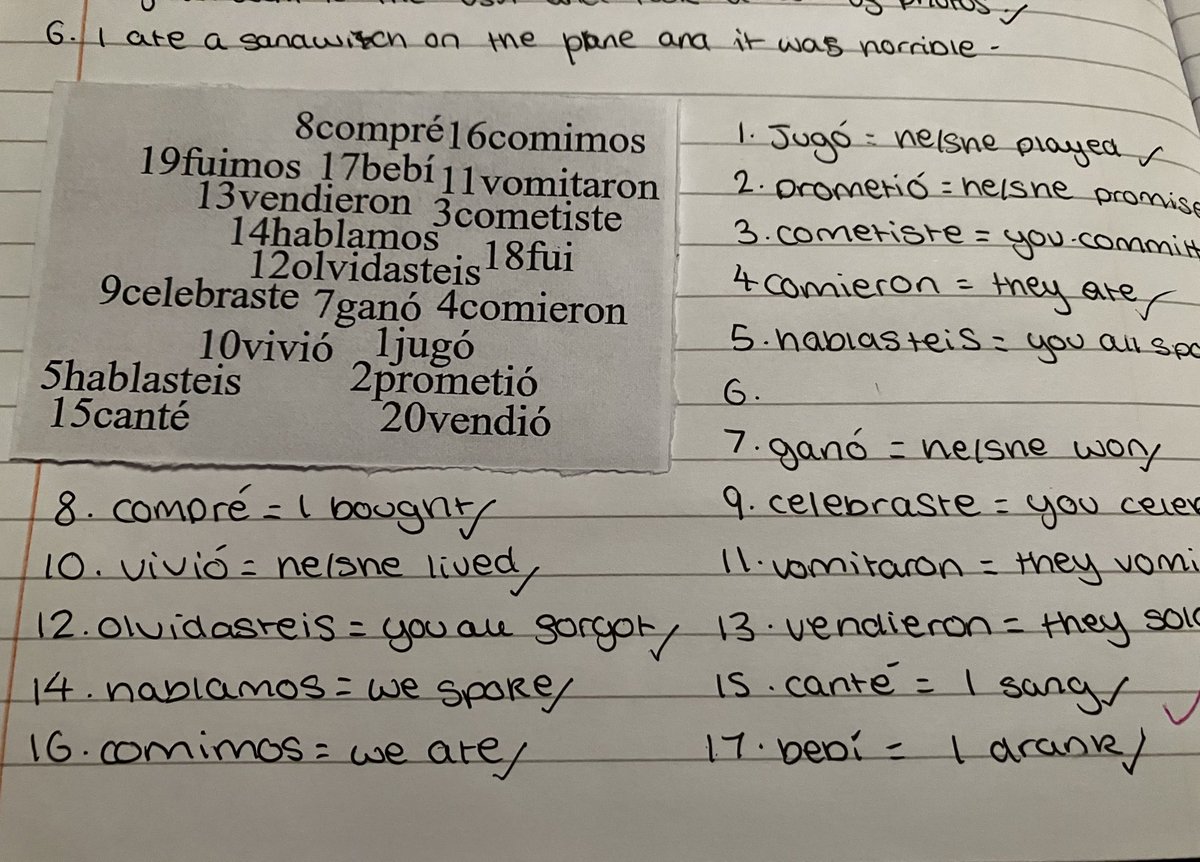 photos.
6. I ate a sandwich on the plane and it was horrible.
8compré 16comimos
19fuimos 17bebí 11vomitaron
13vendieron 3cometiste
14hablamos 18fui
12olvidasteis
9celebraste 7ganó 4comieron
10vivió 1jugó
5hablasteis 2prometió
15canté 20vendió
1. Jugó = he/she played
2. prometió = he/she promise
3. cometiste = you committ
4 comieron = they ate
5. hablasteis = you all spo
6.
7. ganó = he/she won
8. compré = I bought
9. celebraste = you celeb
10. vivió = he/she lived
11. vomitaron = they vomi
12. olvidasteis = you all forgot
13. vendieron = they sold
14. hablamos = we spoke
15. canté = I sang
16. comimos = we ate
17. bebí = I drank